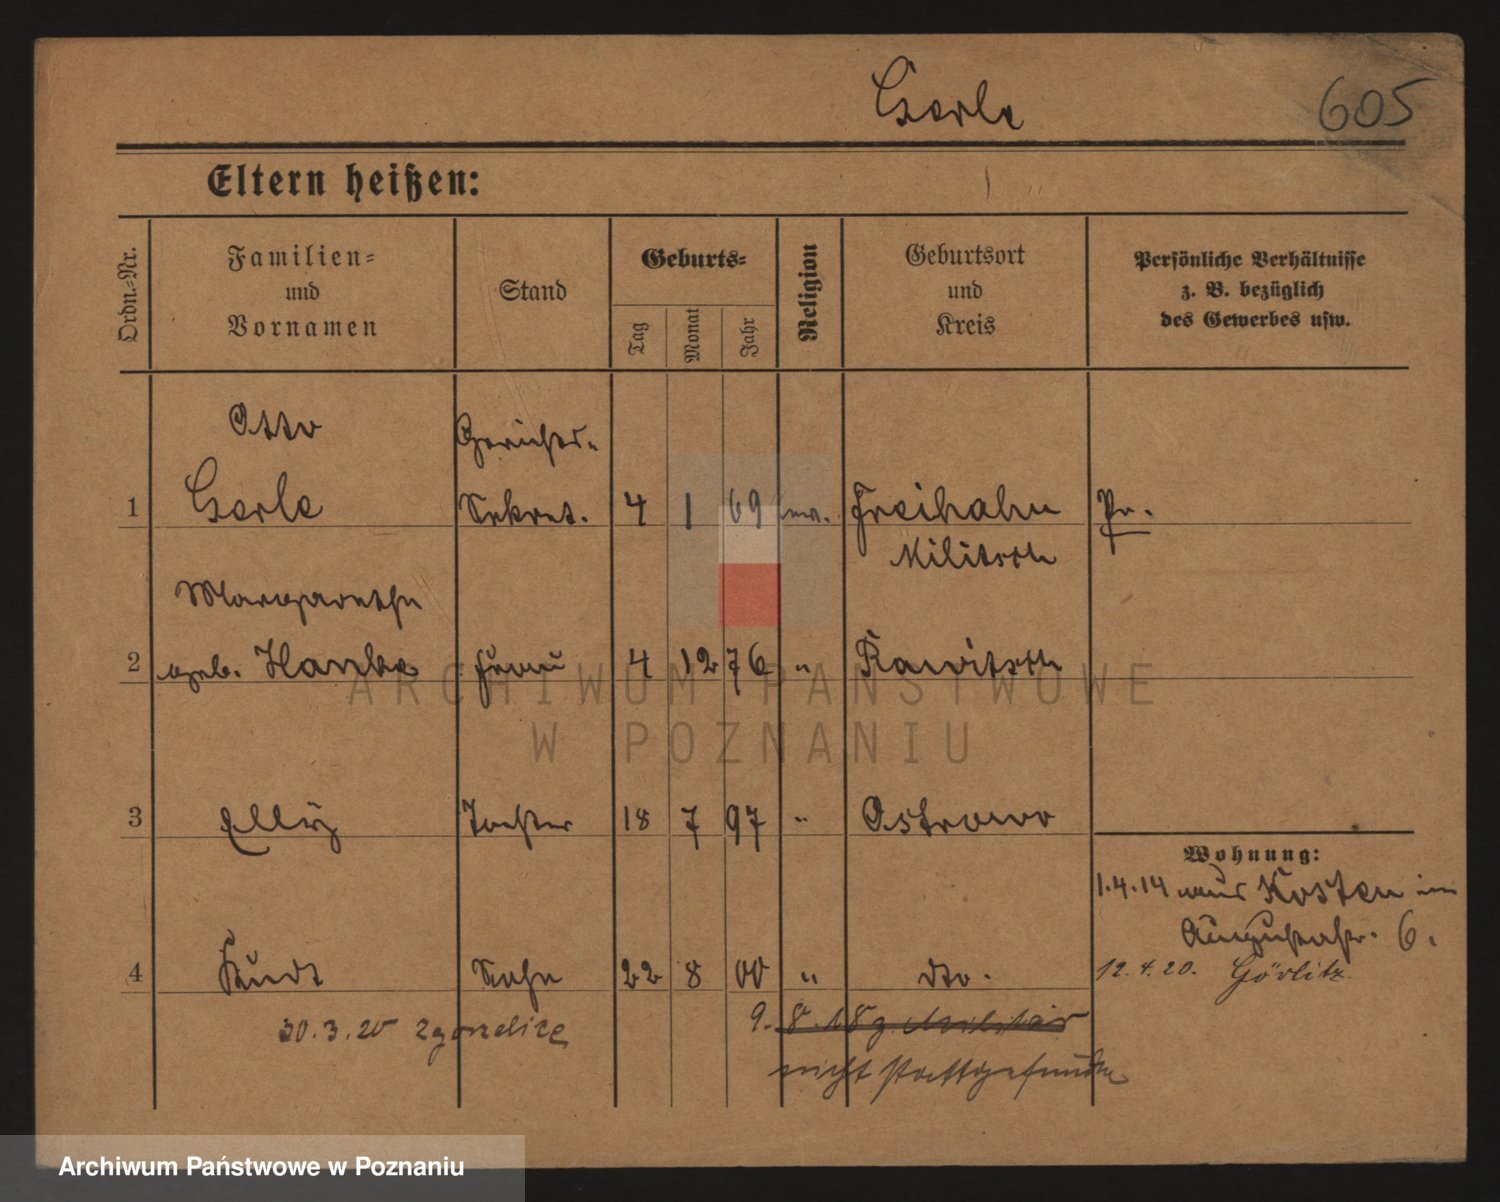 Gerle
605
Eltern heißen:
Ordn.-Nr.
Familien-
und
Vornamen
Stand
Geburts-
Tag
Monat
Jahr
Religion
Geburtsort
und
Kreis
Persönliche Verhältnisse
z. B. bezüglich
des Gewerbes usw.
Otto Gerichts-
1 Gerle Sekret. 4 1 69 ev. Freihahn Pr.
Militsch
Margarethe
2 geb. Frau 4 12 76 " Rawitsch
3 Elly Tochter 18 7 97 " Ostrowo
Wohnung:
1.4.14 aus Kosten in
Augustastr. 6.
4 Kurt Sohn 22 8 00 " dto.
12.4.20. Görlitz
30.3.20 Zgorzelice 9.8.18 z. Militär
nicht stattgefunden
ARCHIWUM PAŃSTWOWE
W POZNANIU
Archiwum Państwowe w Poznaniu